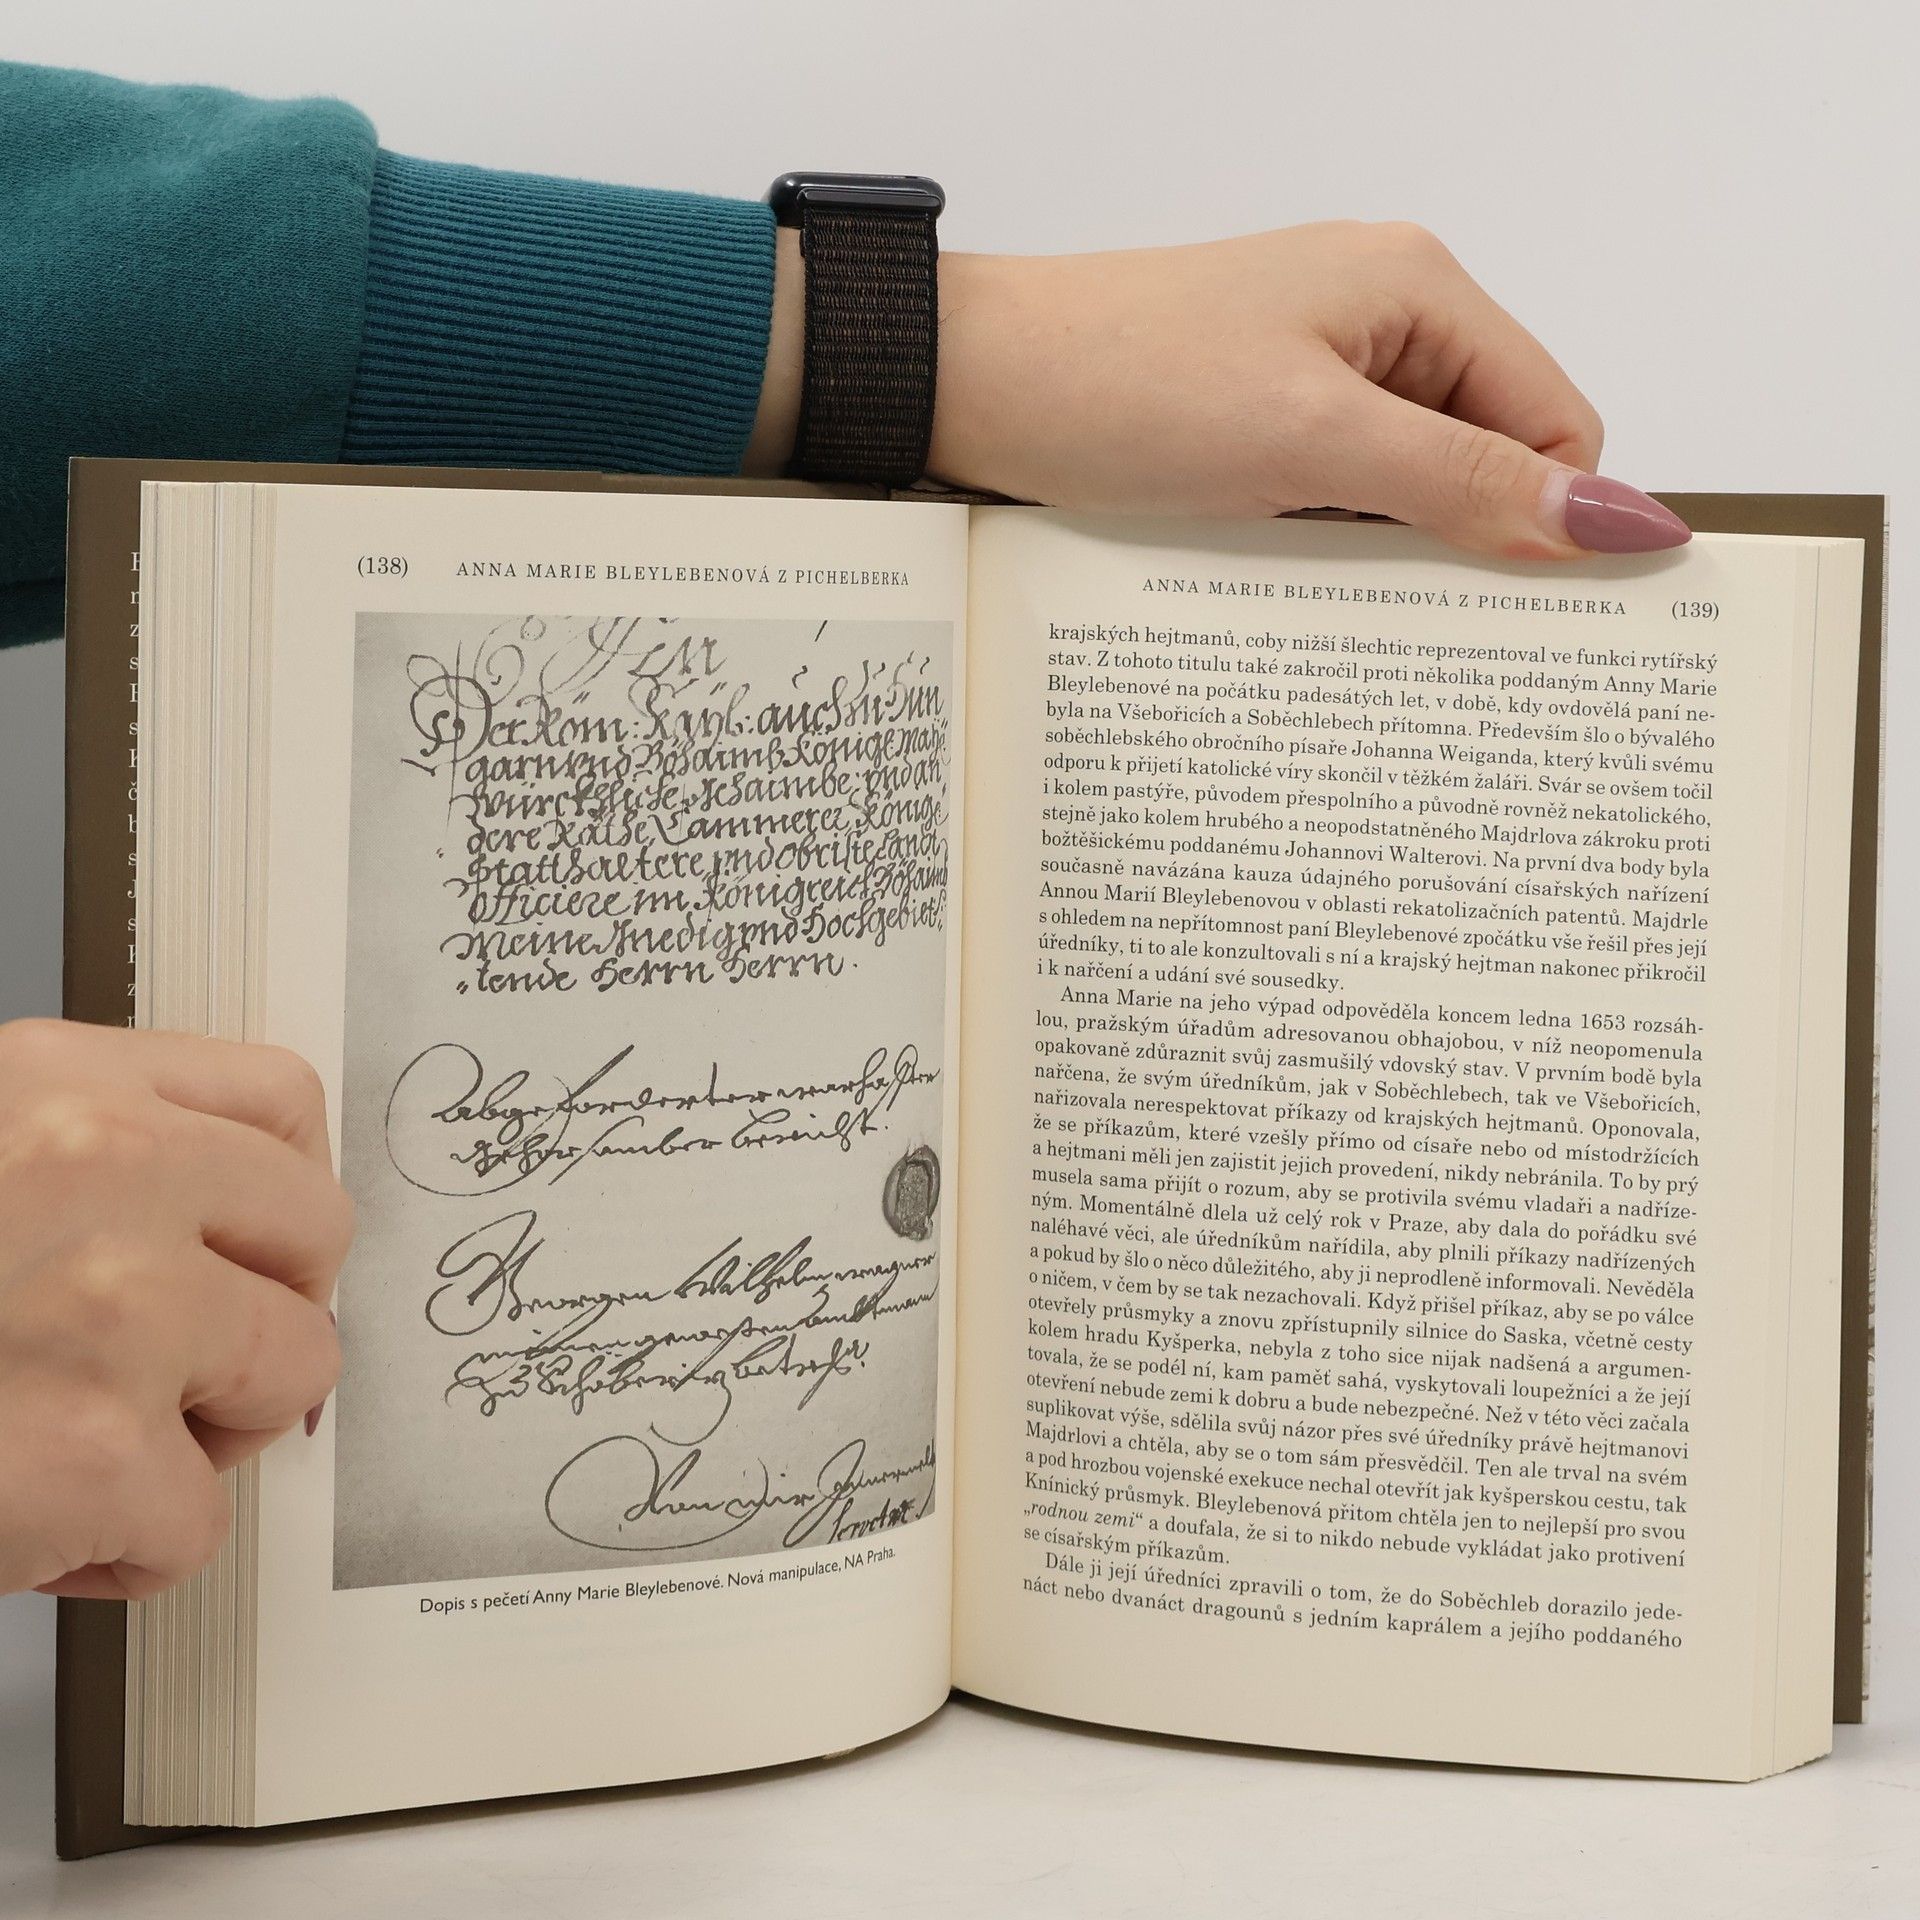 (138) ANNA MARIE BLEYLEBENOVÁ Z PICHELBERKA
Der Röm: Kayß: auch zu Hun
garn vnd Böhaimb Königl: May:
würckhliche gehaimbe: vnd an
dere Räthe, Cammerer, Königl:
Statthaltere vnd obriste Landt
officiere im Königreich Böhaimb
Meine Gnedig vnd Hochgebiet
tende Herrn Herrn.
Abgeforderter warhaffter
gehorsamber bericht.
Georgen Wilhelm wagner
meinen gewesten ambtmann
zu betreff:
Von mir
Dopis s pečetí Anny Marie Bleylebenové. Nová manipulace, NA Praha.
ANNA MARIE BLEYLEBENOVÁ Z PICHELBERKA (139)
krajských hejtmanů, coby nižší šlechtic reprezentoval ve funkci rytířský
stav. Z tohoto titulu také zakročil proti několika poddaným Anny Marie
Bleylebenové na počátku padesátých let, v době, kdy ovdovělá paní ne-
byla na Všebořicích a Soběchlebech přítomna. Především šlo o bývalého
soběchlebského obročního písaře Johanna Weiganda, který kvůli svému
odporu k přijetí katolické víry skončil v těžkém žaláři. Svár se ovšem točil
i kolem pastýře, původem přespolního a původně rovněž nekatolického,
stejně jako kolem hrubého a neopodstatněného Majdrlova zákroku proti
božtěšickému poddanému Johannovi Walterovi. Na první dva body byla
současně navázána kauza údajného porušování císařských nařízení
Annou Marií Bleylebenovou v oblasti rekatolizačních patentů. Majdrle
s ohledem na nepřítomnost paní Bleylebenové zpočátku vše řešil přes její
úředníky, ti to ale konzultovali s ní a krajský hejtman nakonec přikročil
i k nařčení a udání své sousedky.
Anna Marie na jeho výpad odpověděla koncem ledna 1653 rozsáh-
lou, pražským úřadům adresovanou obhajobou, v níž neopomenula
opakovaně zdůraznit svůj zasmušilý vdovský stav. V prvním bodě byla
nařčena, že svým úředníkům, jak v Soběchlebech, tak ve Všebořicích,
nařizovala nerespektovat příkazy od krajských hejtmanů. Oponovala,
že se příkazům, které vzešly přímo od císaře nebo od místodržících
a hejtmani měli jen zajistit jejich provedení, nikdy nebránila. To by prý
musela sama přijít o rozum, aby se protivila svému vladaři a nadříze-
ným. Momentálně dlela už celý rok v Praze, aby dala do pořádku své
naléhavé věci, ale úředníkům nařídila, aby plnili příkazy nadřízených
a pokud by šlo o něco důležitého, aby ji neprodleně informovali. Nevěděla
o ničem, v čem by se tak nezachovali. Když přišel příkaz, aby se po válce
otevřely průsmyky a znovu zpřístupnily silnice do Saska, včetně cesty
kolem hradu Kyšperka, nebyla z toho sice nijak nadšená a argumen-
tovala, že se podél ní, kam paměť sahá, vyskytovali loupežníci a že její
otevření nebude zemi k dobru a bude nebezpečné. Než v této věci začala
suplikovat výše, sdělila svůj názor přes své úředníky právě hejtmanovi
Majdrlovi a chtěla, aby se o tom sám přesvědčil. Ten ale trval na svém
a pod hrozbou vojenské exekuce nechal otevřít jak kyšperskou cestu, tak
Knínický průsmyk. Bleylebenová přitom chtěla jen to nejlepší pro svou
„rodnou zemi“ a doufala, že si to nikdo nebude vykládat jako protivení
se císařským příkazům.
Dále ji její úředníci zpravili o tom, že do Soběchleb dorazilo jede-
náct nebo dvanáct dragounů s jedním kaprálem a jejího poddaného